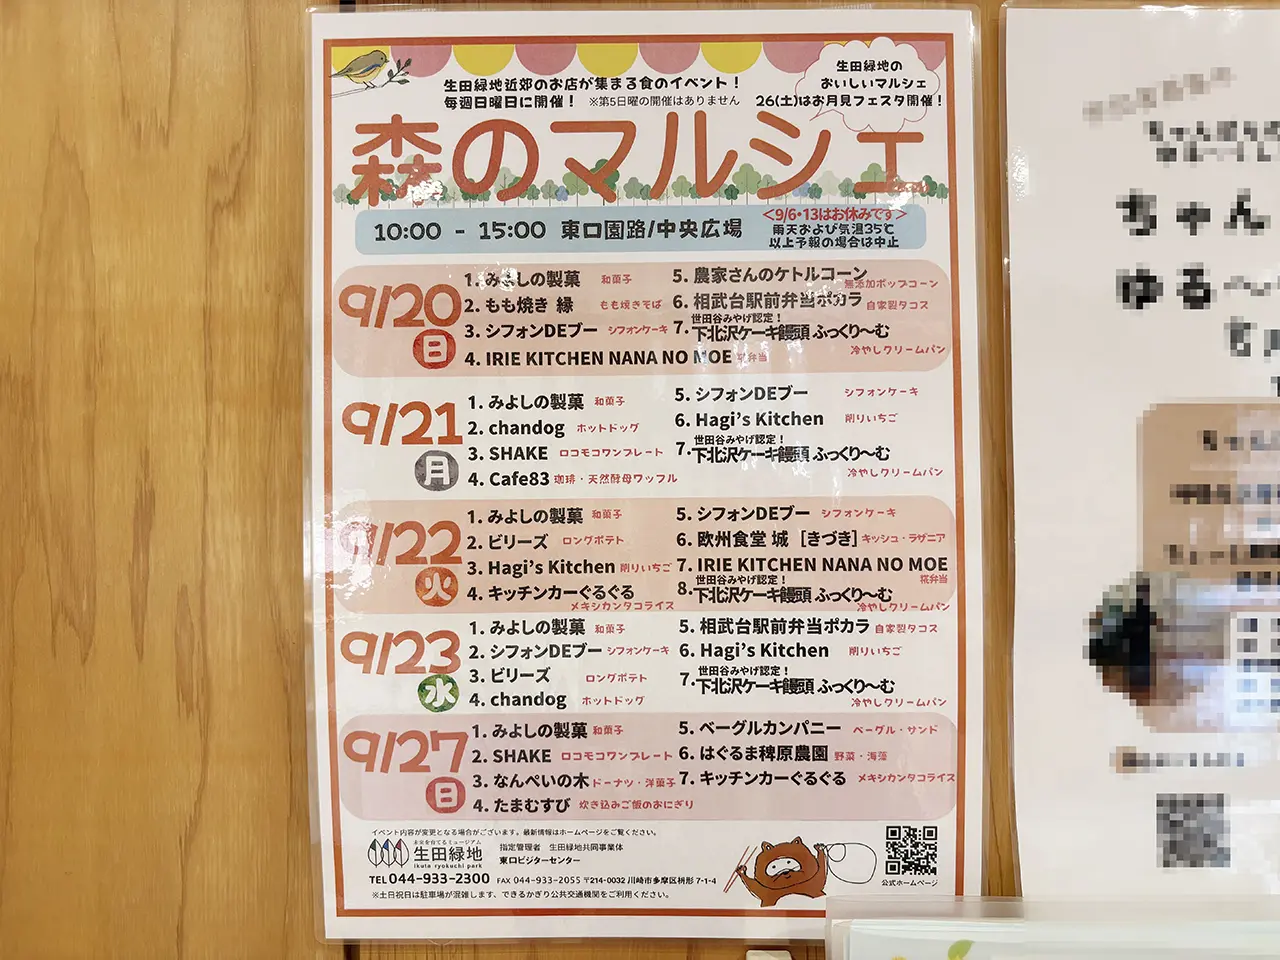 生田緑地近郊のお店が集まる食のイベント！
毎週日曜日に開催！ ※第5日曜の開催はありません
生田緑地の
おいしいマルシェ
26(土)はお月見フェスタ開催！
森のマルシェ
10:00 - 15:00 東口園路/中央広場
＜9/6・13はお休みです＞
雨天および気温35℃
以上予報の場合は中止
9/20 日
1. みよしの製菓 和菓子
2. もも焼き 縁 もも焼きそば
3. シフォンDEブー シフォンケーキ
4. IRIE KITCHEN NANA NO MOE 糀弁当
5. 農家さんのケトルコーン 無添加ポップコーン
6. 相武台駅前弁当ポカラ 自家製タコス
世田谷みやげ認定！
7. 下北沢ケーキ饅頭 ふっくり〜む
冷やしクリームパン
9/21 月
1. みよしの製菓 和菓子
2. chandog ホットドッグ
3. SHAKE ロコモコワンプレート
4. Cafe83 珈琲・天然酵母ワッフル
5. シフォンDEブー シフォンケーキ
6. Hagi's Kitchen 削りいちご
世田谷みやげ認定！
7. 下北沢ケーキ饅頭 ふっくり〜む
冷やしクリームパン
9/22 火
1. みよしの製菓 和菓子
2. ビリーズ ロングポテト
3. Hagi's Kitchen 削りいちご
4. キッチンカーぐるぐる
メキシカンタコライス
5. シフォンDEブー シフォンケーキ
6. 欧州食堂 城 [きづき] キッシュ・ラザニア
7. IRIE KITCHEN NANA NO MOE
糀弁当
世田谷みやげ認定！
8. 下北沢ケーキ饅頭 ふっくり〜む
冷やしクリームパン
9/23 水
1. みよしの製菓 和菓子
2. シフォンDEブー シフォンケーキ
3. ビリーズ ロングポテト
4. chandog ホットドッグ
5. 相武台駅前弁当ポカラ 自家製タコス
6. Hagi's Kitchen 削りいちご
世田谷みやげ認定！
7. 下北沢ケーキ饅頭 ふっくり〜む
冷やしクリームパン
9/27 日
1. みよしの製菓 和菓子
2. SHAKE ロコモコワンプレート
3. なんぺいの木 ドーナツ・洋菓子
4. たまむすび 炊き込みご飯のおにぎり
5. ベーグルカンパニー ベーグル・サンド
6. はぐるま稗原農園 野菜・海藻
7. キッチンカーぐるぐる メキシカンタコライス
イベント内容が変更となる場合がございます。最新情報はホームページをご覧ください。
未来を育てるミュージアム
生田緑地
ikuta ryokuchi park
指定管理者 生田緑地共同事業体
東口ビジターセンター
TEL 044-933-2300 FAX 044-933-2055 〒214-0032 川崎市多摩区枡形 7-1-4
※土日祝日は駐車場が混雑します、できるかぎり公共交通機関をご利用ください。
公式ホームページ
ちゃん
ゆる〜